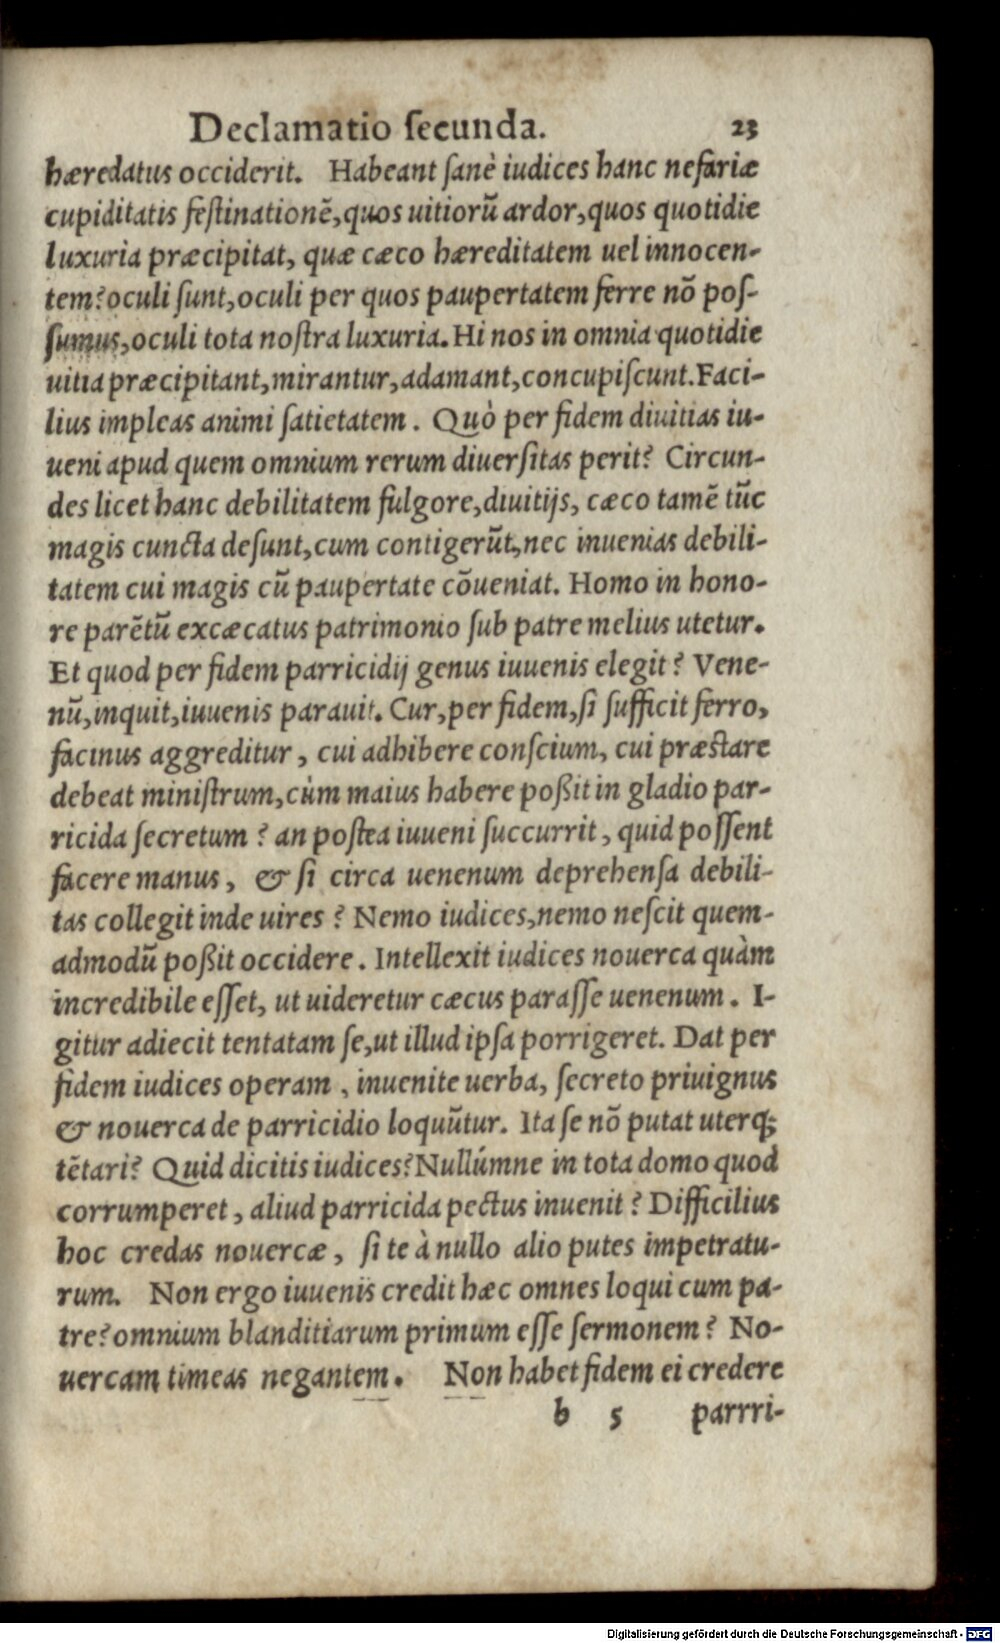 Declamatio ſecunda. 23
hæredatus occiderit. Habeant ſanè iudices hanc nefariæ
cupiditatis feſtinationē,quos uitiorū ardor,quos quotidie
luxuria præcipitat, quæ cæco hæreditatem uel innocen-
tem?oculi ſunt,oculi per quos paupertatem ferre nō poſ-
ſumus,oculi tota noſtra luxuria.Hi nos in omnia quotidie
uitia præcipitant,mirantur,adamant,concupiſcunt.Faci-
lius impleas animi ſatietatem. Quò per fidem diuitias iu-
ueni apud quem omnium rerum diuerſitas perit? Circun-
des licet hanc debilitatem fulgore,diuitijs, cæco tamē tūc
magis cuncta deſunt,cum contigerūt,nec inuenias debili-
tatem cui magis cū paupertate cōueniat. Homo in hono-
re parētū excæcatus patrimonio ſub patre melius utetur.
Et quod per fidem parricidij genus iuuenis elegit? Vene-
nū,inquit,iuuenis parauit. Cur,per fidem,ſi ſufficit ferro,
facinus aggreditur, cui adhibere conſcium, cui præſtare
debeat miniſtrum,cùm maius habere poßit in gladio par-
ricida ſecretum? an poſtea iuueni ſuccurrit, quid poſſent
facere manus, & ſi circa uenenum deprehenſa debili-
tas collegit inde uires? Nemo iudices,nemo neſcit quem-
admodū poßit occidere. Intellexit iudices nouerca quàm
incredibile eſſet, ut uideretur cæcus paraſſe uenenum. I-
gitur adiecit tentatam ſe,ut illud ipſa porrigeret. Dat per
fidem iudices operam, inuenite uerba, ſecreto priuignus
& nouerca de parricidio loquūtur. Ita ſe nō putat uterq;
tētari? Quid dicitis iudices?Nullúmne in tota domo quod
corrumperet, aliud parricida pectus inuenit? Difficilius
hoc credas nouercæ, ſi te à nullo alio putes impetratu-
rum. Non ergo iuuenis credit hæc omnes loqui cum pa-
tre?omnium blanditiarum primum eſſe ſermonem? No-
uercam timeas negantem. Non habet fidem ei credere
b 5 parrri-
Digitalisierung gefördert durch die Deutsche Forschungsgemeinschaft - DFG